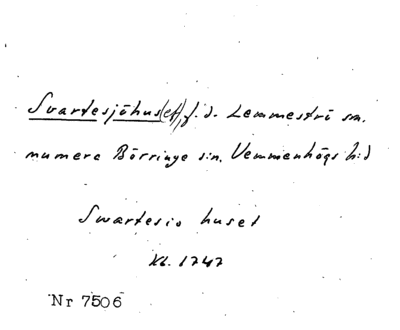 Svartesjöhus(et), f.d. Lemmeströ sn.
numera Börringe sn. Vemmenhögs h:d
Swartesio huset
Kb. 1747
Nr 7506